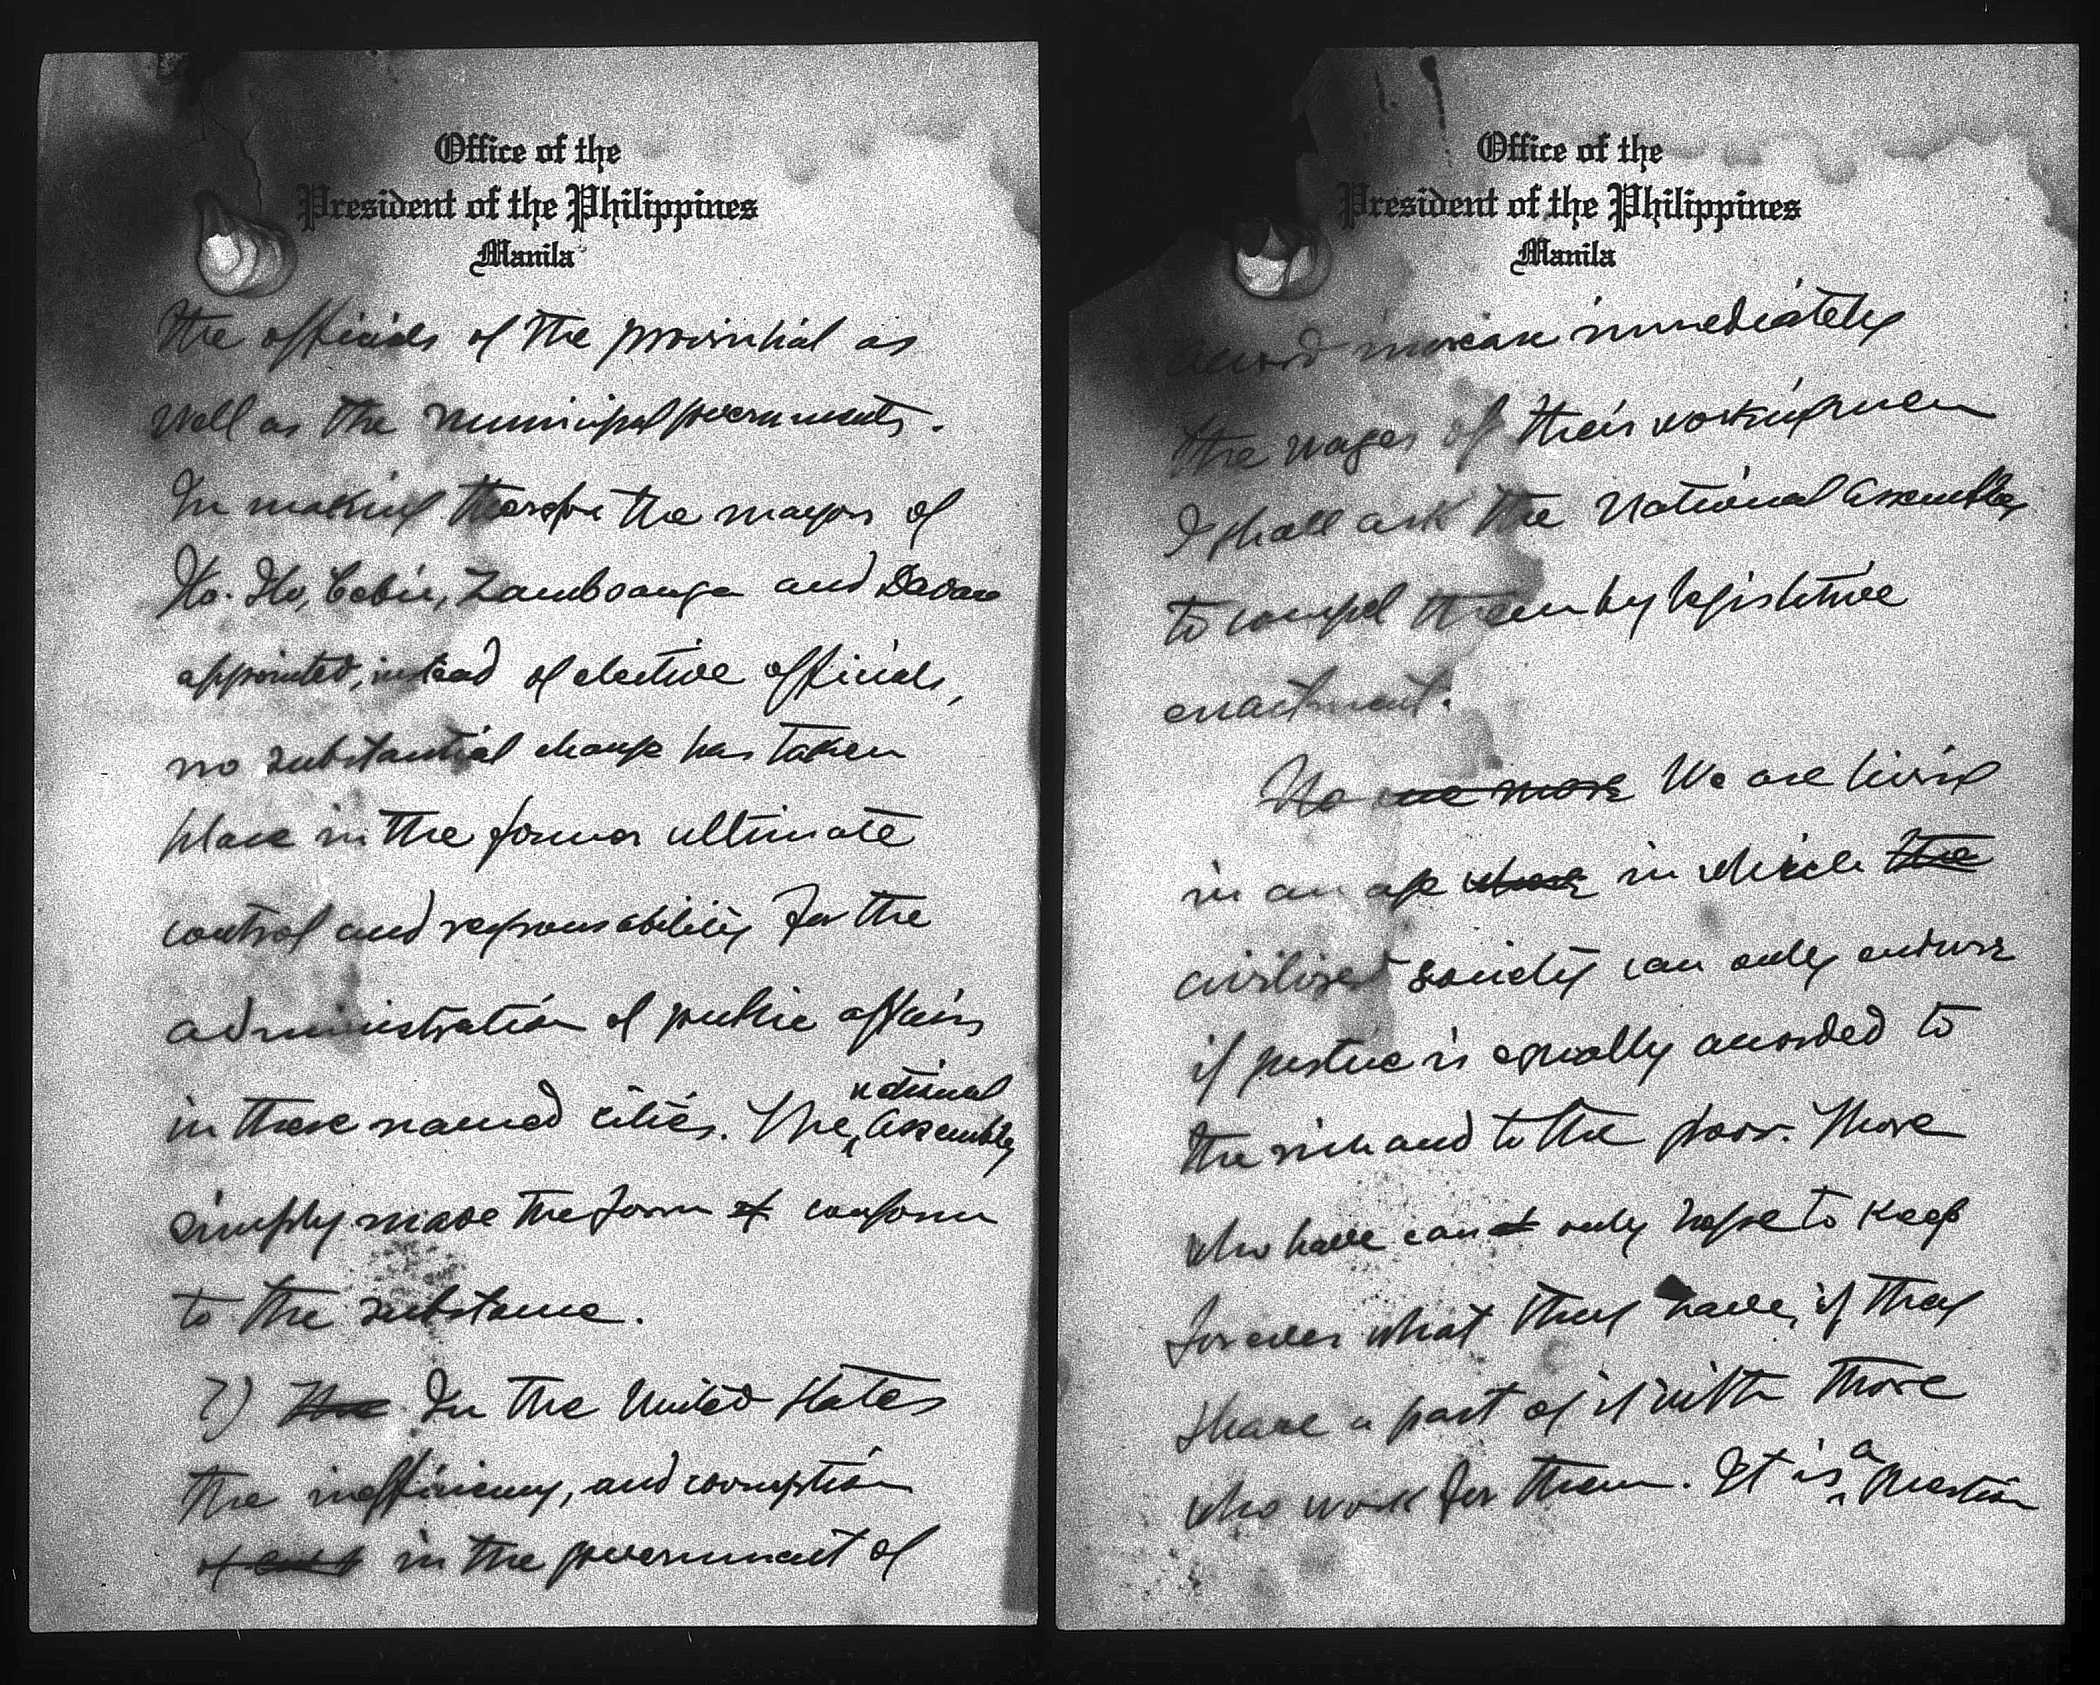 Office of the
President of the Philippines
Manila
the officials of the provincial as
well as the municipal governments.
In making therefore the mayors of
Ilo-Ilo, Cebú, Zamboanga and Davao
appointed, instead of elective officials,
no substantial change has taken
place in the former ultimate
control and responsability for the
administration of public affairs
in these named cities. The national Assembly
simply made the form of conform
to the substance.
7) The In the United States
the inefficiency, and corruption
of in the government of
Office of the
President of the Philippines
Manila
accord increase immediately
the wages of their workingmen
I shall ask the National Assembly
to compel them by legislative
enactment.
No one more We are living
in an age where in which the
civilized society can only endure
if justice is equally accorded to
the rich and to the poor. Those
who have can only hope to keep
forever what they have, if they
share a part of it with those
who work for them. It is a question